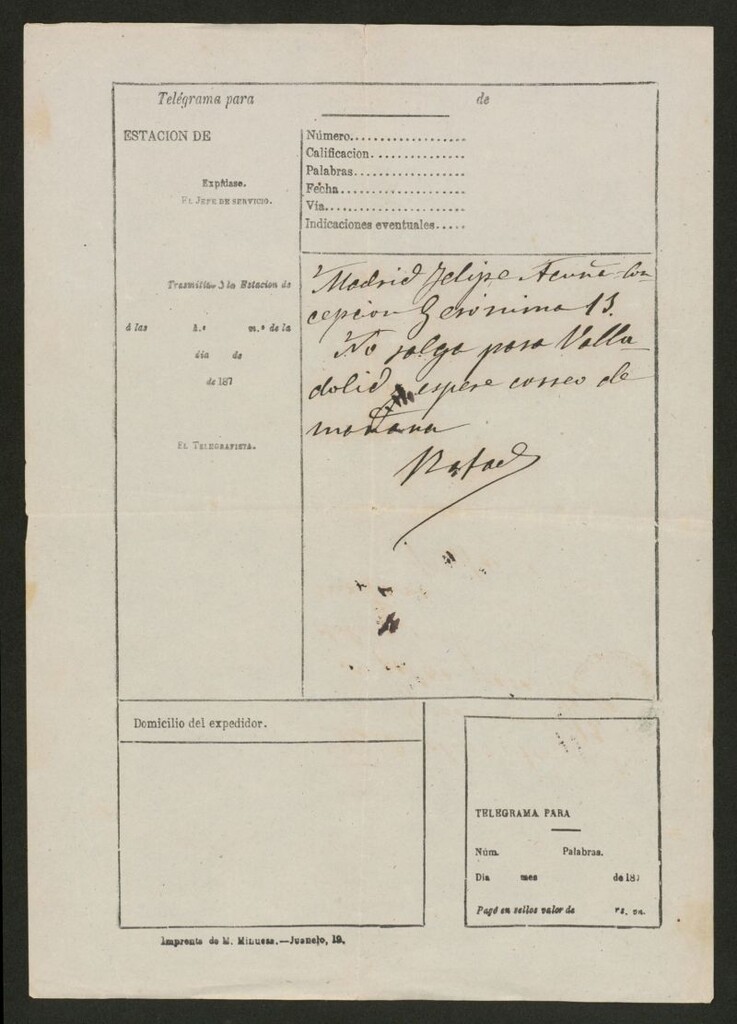 Telégrama para de
ESTACION DE
Expídase.
EL JEFE DE SERVICIO.
Número
Calificacion
Palabras
Fecha
Vía
Indicaciones eventuales
Trasmitido á la Estacion de
á las h.s m.s de la
dia de
de 187
EL TELEGRAFISTA.
Madrid Felipe Acuña Con
cepcion Geronima 13.
No salga para Valla-
dolid espere correo de
mañana
Rafael
Domicilio del expedidor.
TELEGRAMA PARA
Núm. Palabras.
Dia mes de 187
Pagó en sellos valor de rs. vn.
Imprenta de M. Minuesa.—Juanelo, 19.